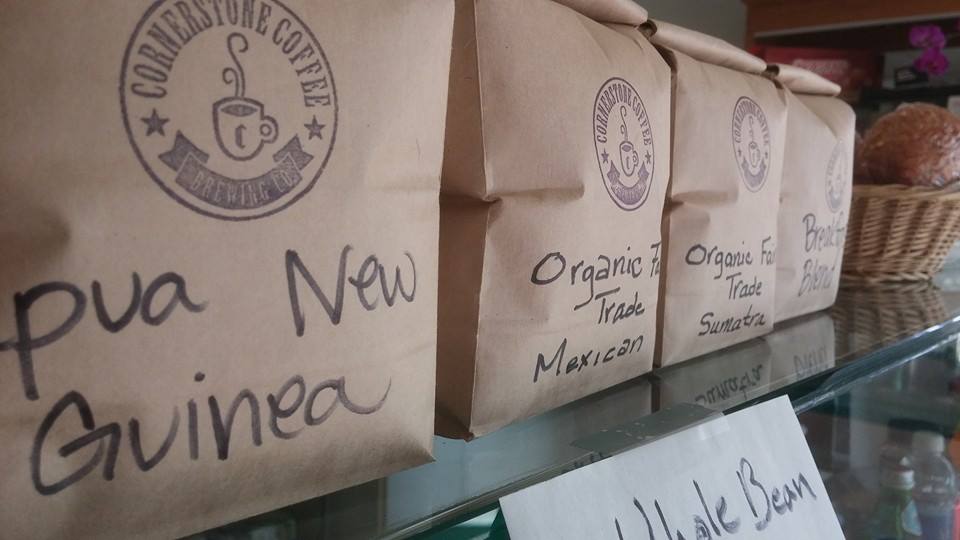 CORNERSTONE COFFEE
BREWING CO.
pua New
Guinea
CORNERSTONE COFFEE
Organic Fa
Trade
Mexican
CORNERSTONE COFFEE
Organic Fai
Trade
Sumatra
Breakf
Blend
Whole Bean